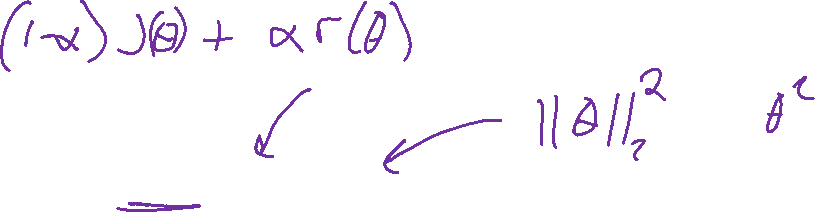 (1-α) J(θ) + α r(θ)
||θ||₂² θ²